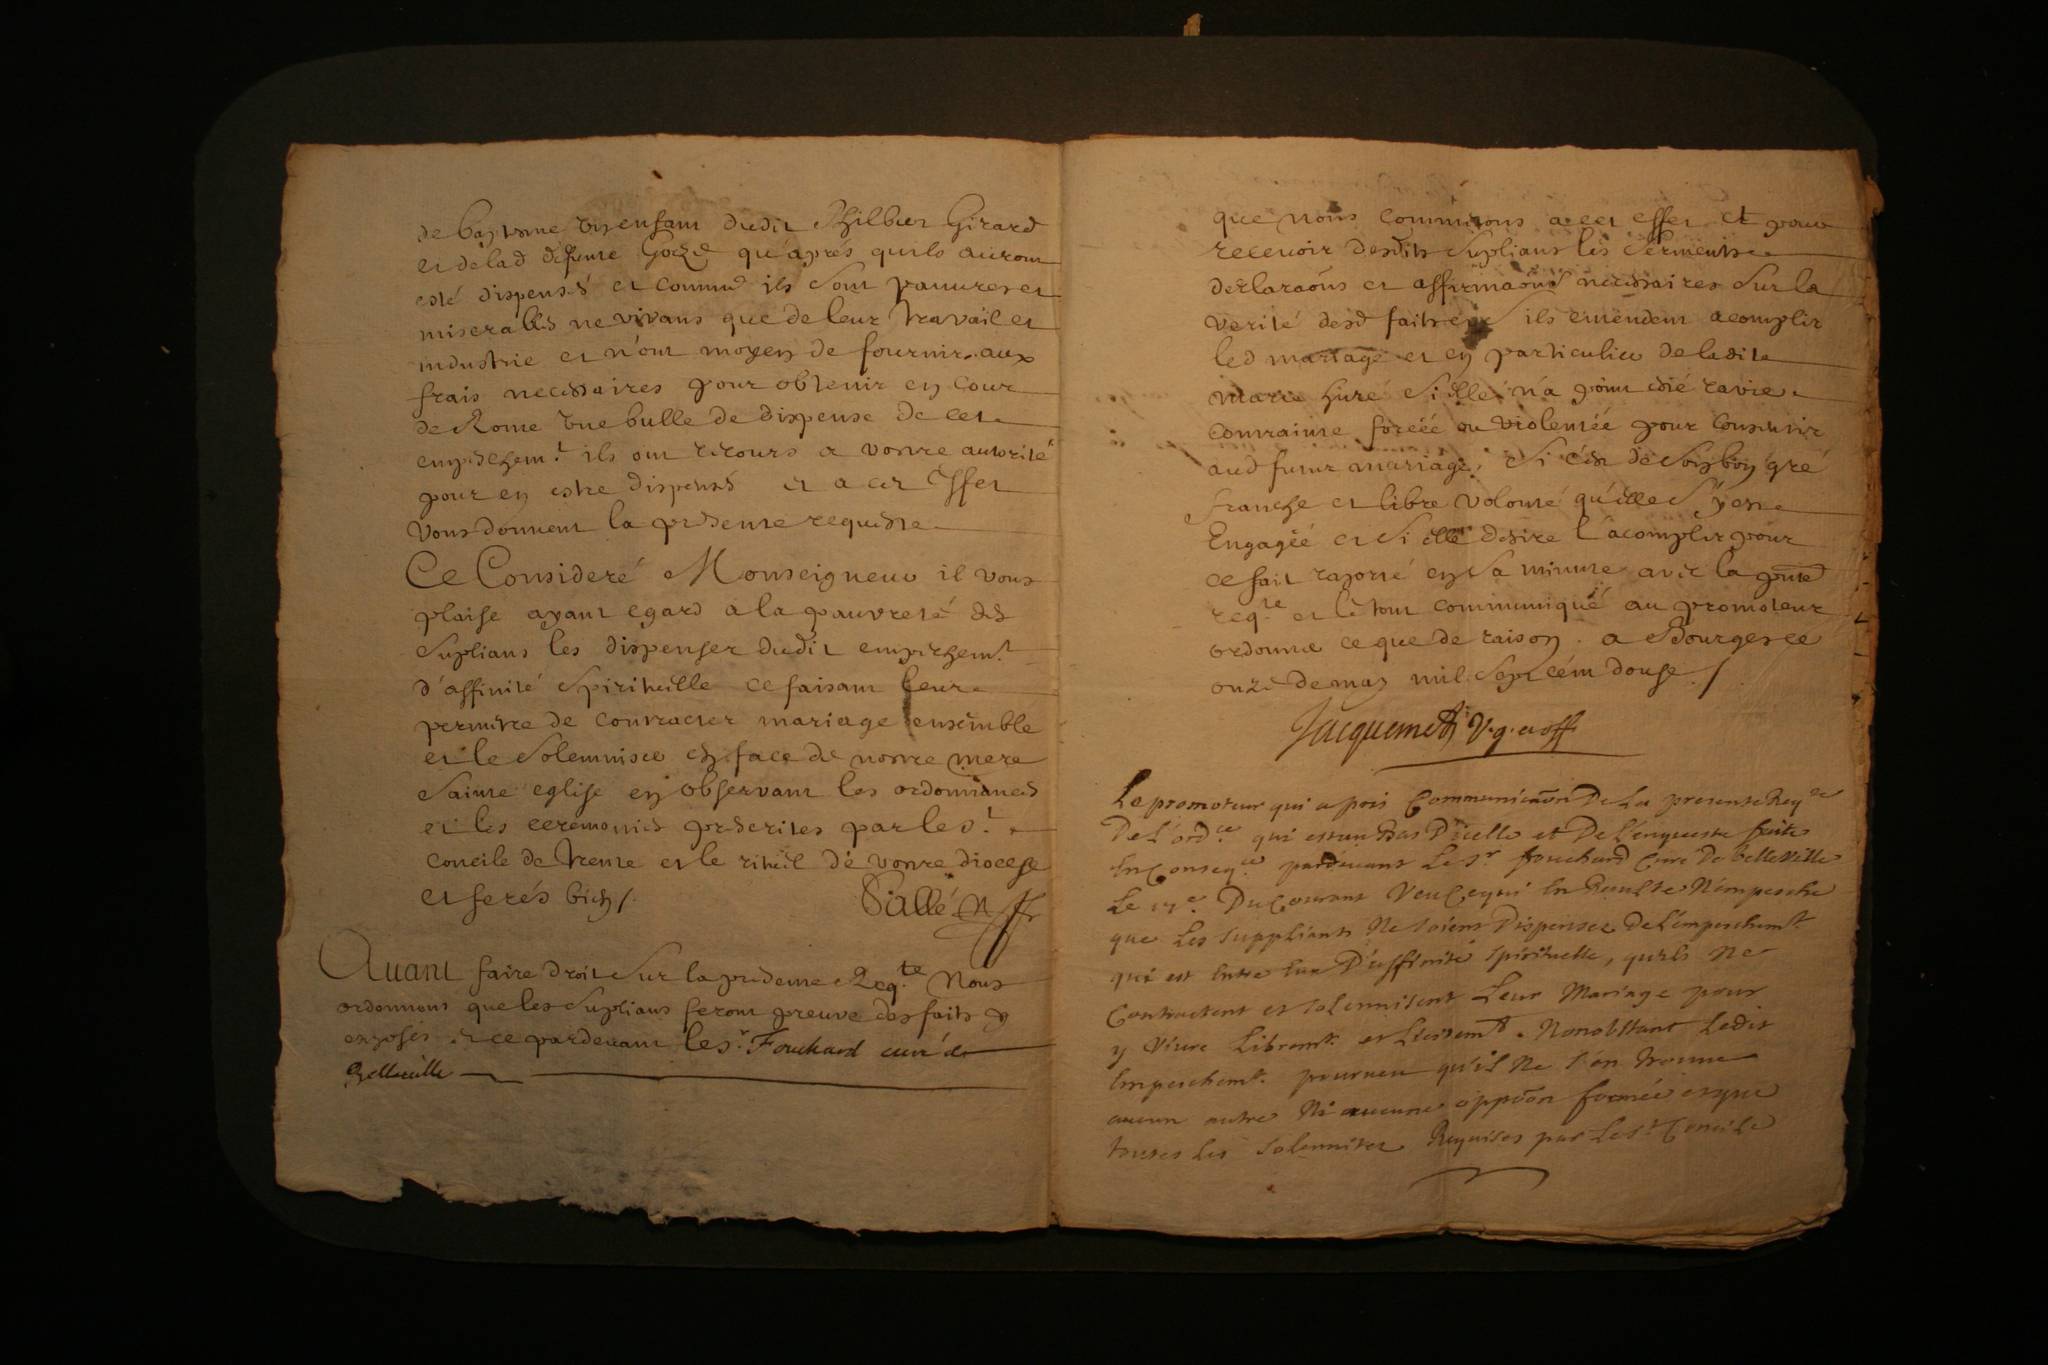 de baptsme un enfant dudit Philber Girard
et de lad defunte qu'aprés quils auront
esté dispensés et comme ils sont pauures et
miserables ne vivans que de leur travail et
industrie et n'ont moyen de fournir aux
frais necessaires pour obtenir en cour
de Rome une bulle de dispense de cet
empeschemt. ils ont recours a vostre autorité
pour en estre dispensés et a cet Effet
vous donnent la presente requeste
Ce Consideré Monseigneur il vous
plaise ayant egard a la pauvreté des
suplians les dispenser dudit empeschemt.
d'affinité spirituelle ce faisant leur
permettre de contracter mariage ensemble
et le solemniser en face de nostre mere
sainte eglise en observant les ordonnances
et les ceremonies prescrites par le st.
concile de trente et le rituel de vostre diocese
et ferés bien /.
Sallé
Auant faire droit sur la presente Reqte. Nous
ordonnons que les suplians feront preuve des faits y
exposés et ce pardeuant le sr. Fouchard curé de
Belleuille
que nous commettons a cet effet et pour
recevoir desdits suplians les serments
declaraõns et affirmaõns necessaires sur la
verité desd faits ils entendent acomplir
led mariage et en particulier de ladite
marie huré si elle n'a point esté ravie
contrainte forcéé ou violentéé pour consentir
aud futur mariage, si c'est de son bon gré
franche et libre volonté qu'elle s'y est
Engagéé et si elle desire l'acomplir pour
ce fait raporté en sa minute avec la pnte
reqte. et le tout communiqué au promoteur
ordonné ce que de raison. a Bourges ce
onze de may mil sept cent douze /
Jacquemet v. g. et off
Le promoteur qui a pris Communicaõn De La presente Reqte
De L'ordce. qui est au Bas D'icelle et De L'enqueste faite
En Conseqce pardeuant Le Sr fouchard Curé De belleville
Le 17e. Du Courant Veu Ce qui En Resulte N'empesche
que Les suppliants Ne soient Dispensez De L'empeschemt
qui est Entre Eux D'affinité spirituelle, qu'ils Ne
Contractent et solennisent Leur Mariage pour
y Viure Libremt. et Licitemt. Nonobstant Ledit
Empeschemt. pourueu qu'il Ne s'en trouve
aucun autre Ni aucune oppõon formée et que
toutes Les solennitez Requises par Le St Concile